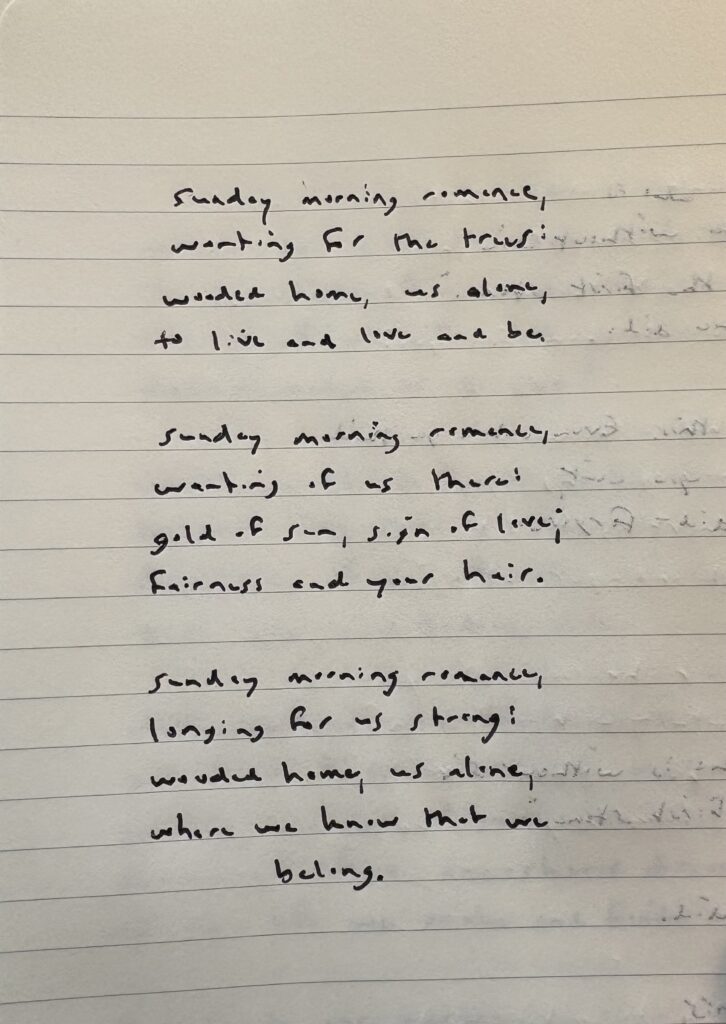 sunday morning romance,
wanting for the trees:
wooded home, us alone,
to live and love and be.
sunday morning romance,
wanting of us there:
gold of sun, sign of love;
fairness and your hair.
sunday morning romance,
longing for us strong:
wooded home, us alone,
where we know that we
belong.